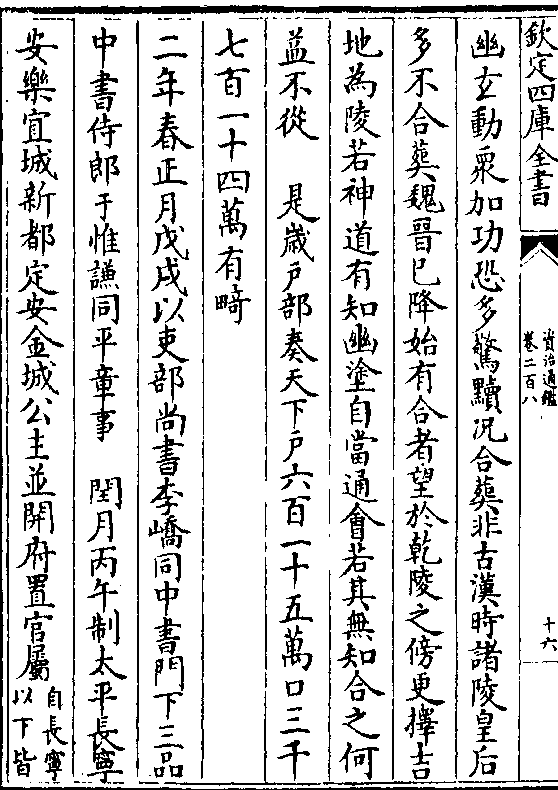 欽定四庫全書
資治通鑑
卷二百八
十六
幽𤣥動衆加功恐多驚黷况合葬非古漢時諸陵皇后
多不合葬魏晉已降始有合者望於乾陵之傍更擇吉
地為陵若神道有知幽塗自當通會若其無知合之何
益不從 是歲户部奏天下户六百一十五萬口三千
七百一十四萬有畸
二年春正月戊戌以吏部尚書李嶠同中書門下三品
中書侍郎于惟謙同平章事 閏月丙午制太平長寧
安樂宜城新都定安金城公主並開府置官屬
自長寧
以下皆